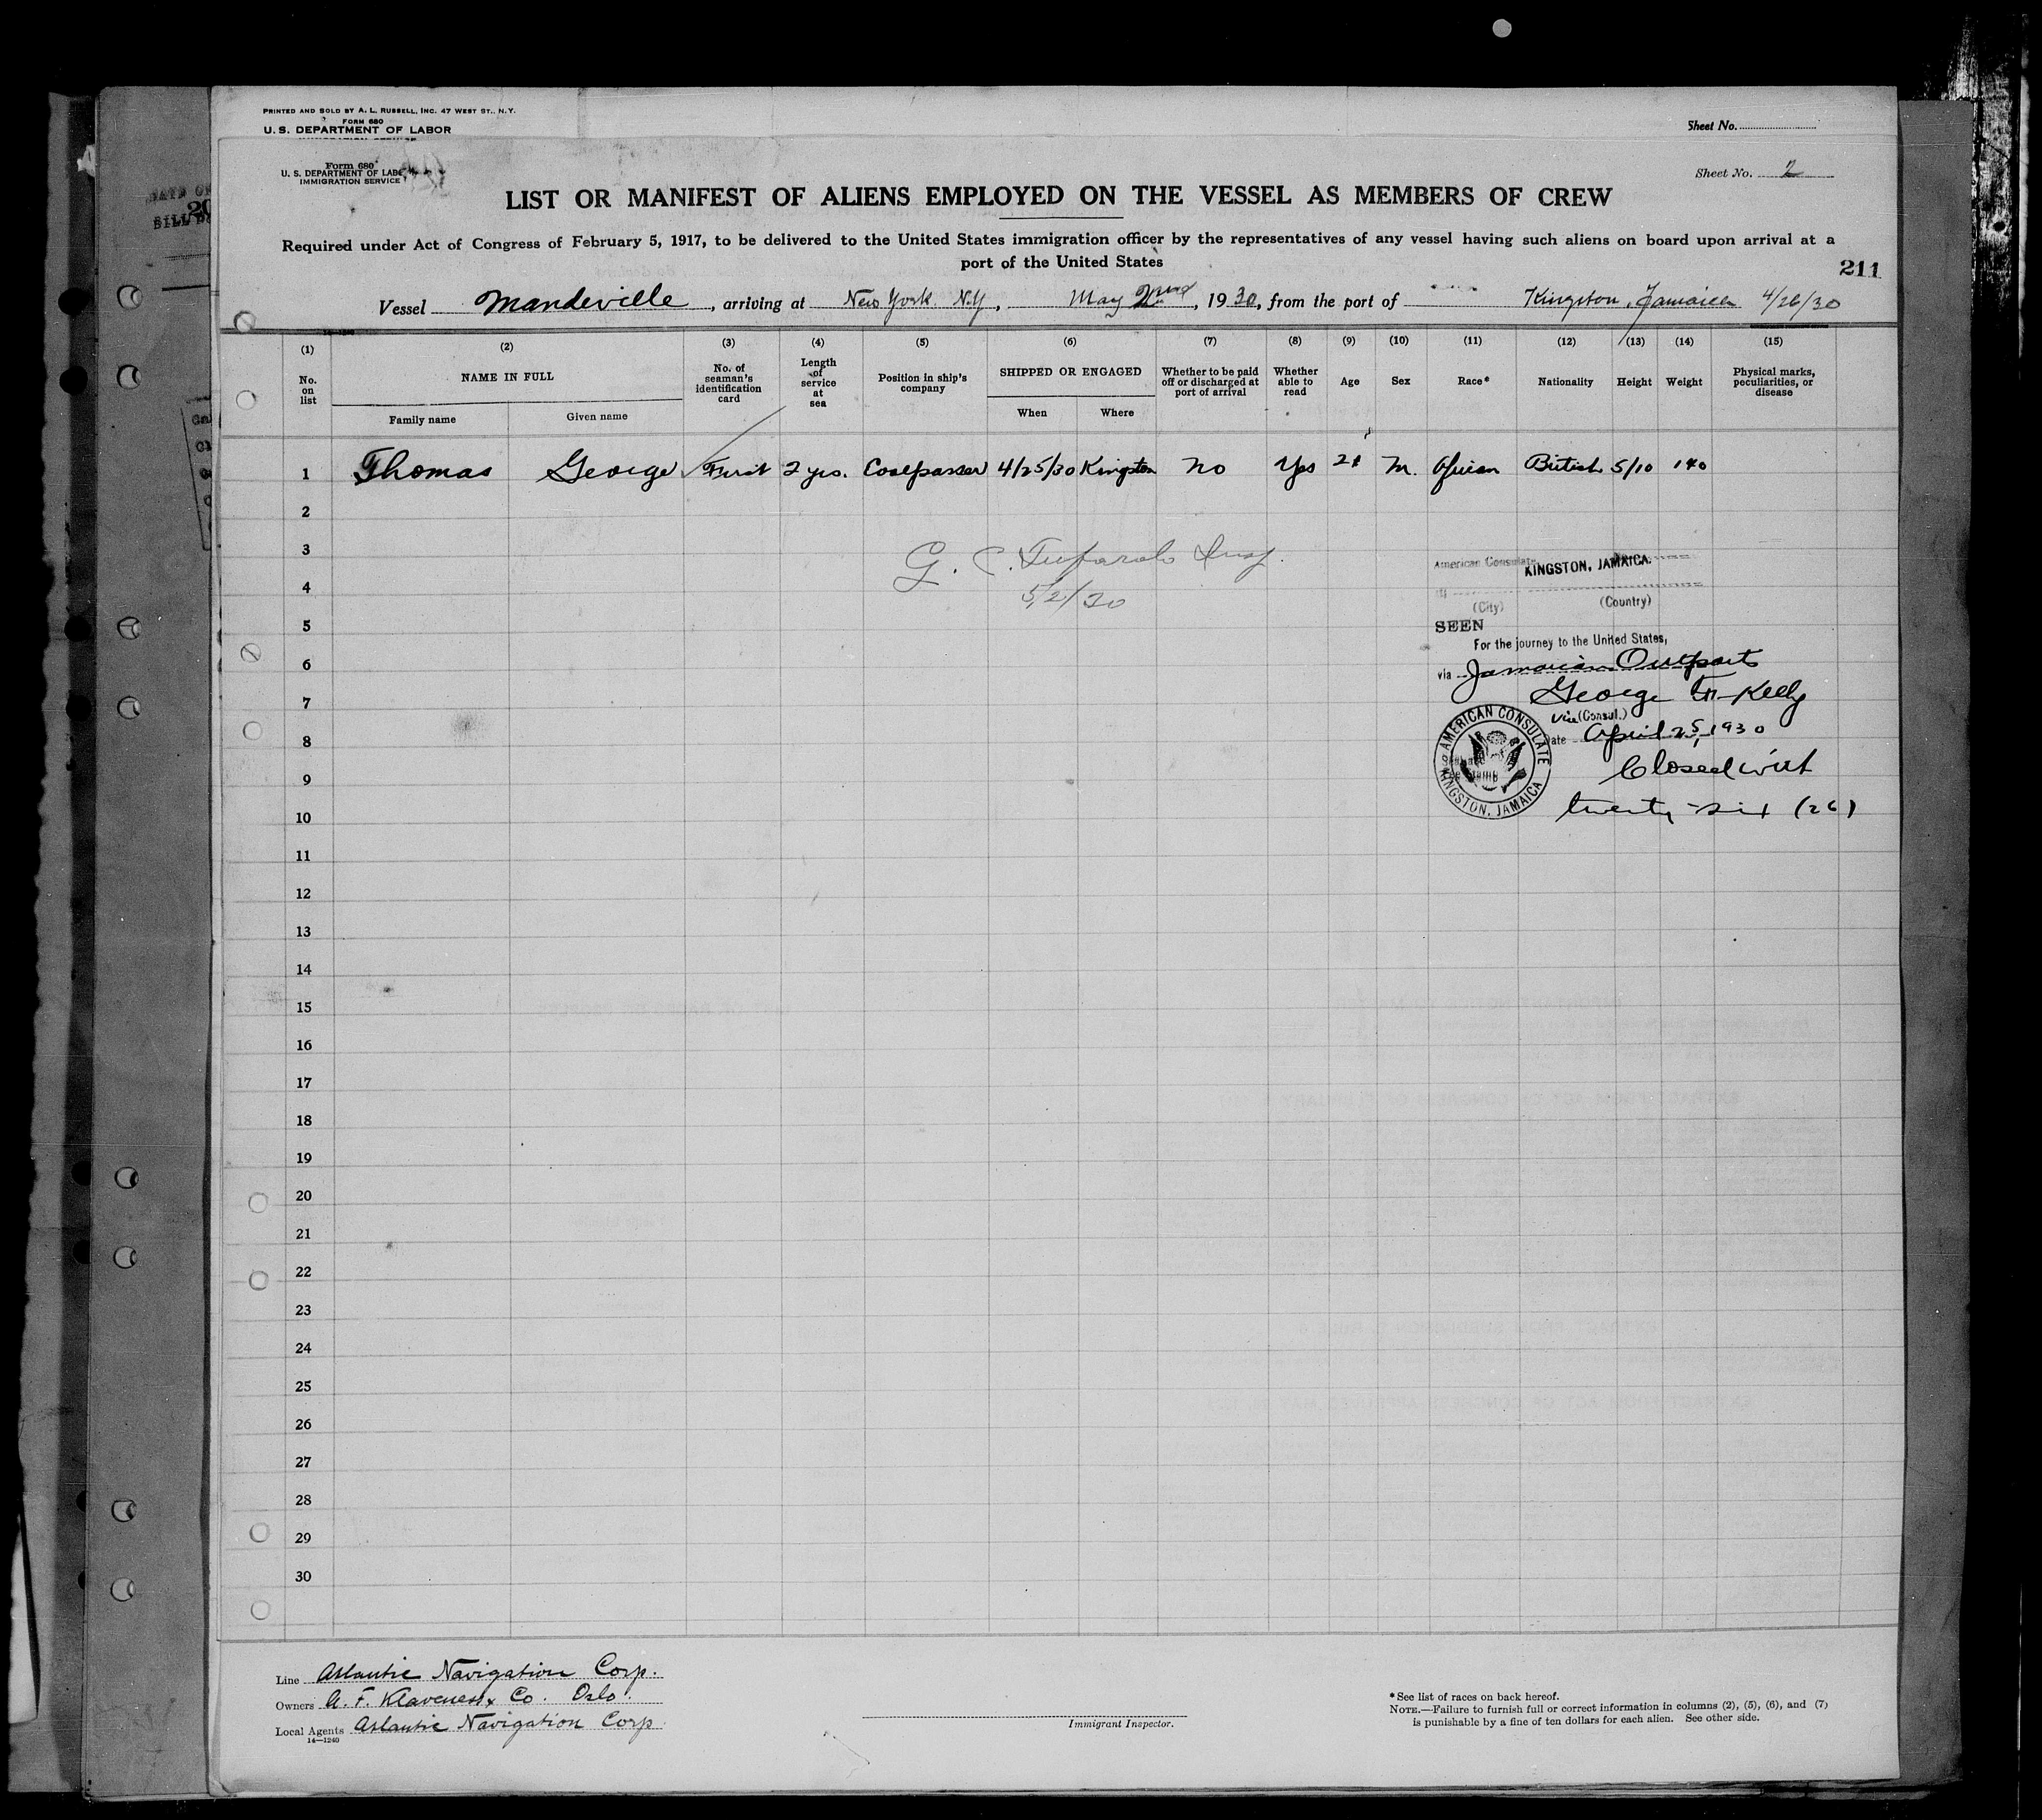 PRINTED AND SOLD BY A. L. RUSSELL, INC. 47 WEST ST., N. Y.
FORM 680
U. S. DEPARTMENT OF LABOR
Sheet No.
Form 680
U. S. DEPARTMENT OF LABOR
IMMIGRATION SERVICE
Sheet No. 2
LIST OR MANIFEST OF ALIENS EMPLOYED ON THE VESSEL AS MEMBERS OF CREW
Required under Act of Congress of February 5, 1917, to be delivered to the United States immigration officer by the representatives of any vessel having such aliens on board upon arrival at a
port of the United States
211
Vessel Mandeville, arriving at New York N.Y, May 2nd, 1930, from the port of Kingston, Jamaica 4/26/30
(1) (2) (3) (4) (5) (6) (7) (8) (9) (10) (11) (12) (13) (14) (15)
No. on list NAME IN FULL No. of seaman's identification card Length of service at sea Position in ship's company SHIPPED OR ENGAGED Whether to be paid off or discharged at port of arrival Whether able to read Age Sex Race* Nationality Height Weight Physical marks, peculiarities, or disease
Family name Given name When Where
1 Thomas George First 2 yrs. Coalpasser 4/25/30 Kingston No Yes 21 M. African British 5/10 140
2
3
G. C. Insp.
4
5/2/30
American Consulate
KINGSTON, JAMAICA.
(City) (Country)
5
SEEN
For the journey to the United States,
6
via Jamaican Outports
7
George Kelly
Vice (Consul.)
8
Date April 25, 1930
AMERICAN CONSULATE
KINGSTON, JAMAICA
9
Closed with
10
twenty-six (26)
11
12
13
14
15
16
17
18
19
20
21
22
23
24
25
26
27
28
29
30
Line Atlantic Navigation Corp.
Owners A. F. Klaveness & Co. Oslo.
Local Agents Atlantic Navigation Corp
14—1240
Immigrant Inspector.
*See list of races on back hereof.
NOTE.—Failure to furnish full or correct information in columns (2), (5), (6), and (7)
is punishable by a fine of ten dollars for each alien. See other side.